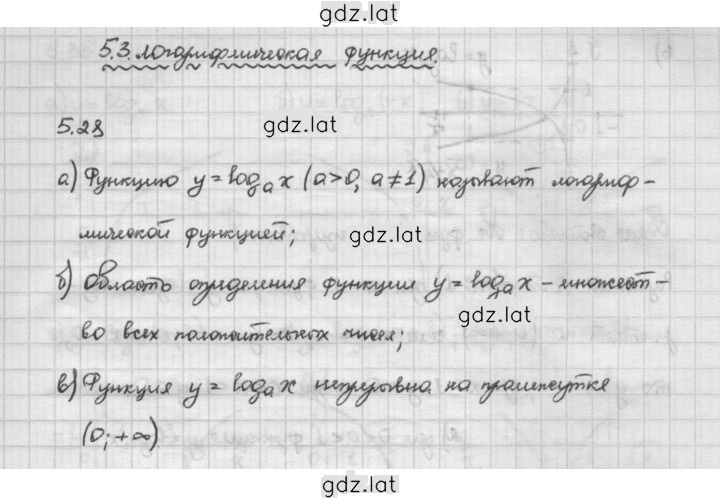 gdz.lat
5.3. логарифмическая функция.
5.28 gdz.lat
а) Функцию y = logₐ x (a>0, a≠1) называют логариф-
мической функцией; gdz.lat
б) Область определения функции y = logₐ x – множест-
gdz.lat
во всех положительных чисел;
в) Функция y = logₐ x непрерывна на промежутке
(0; +∞)
gdz.lat